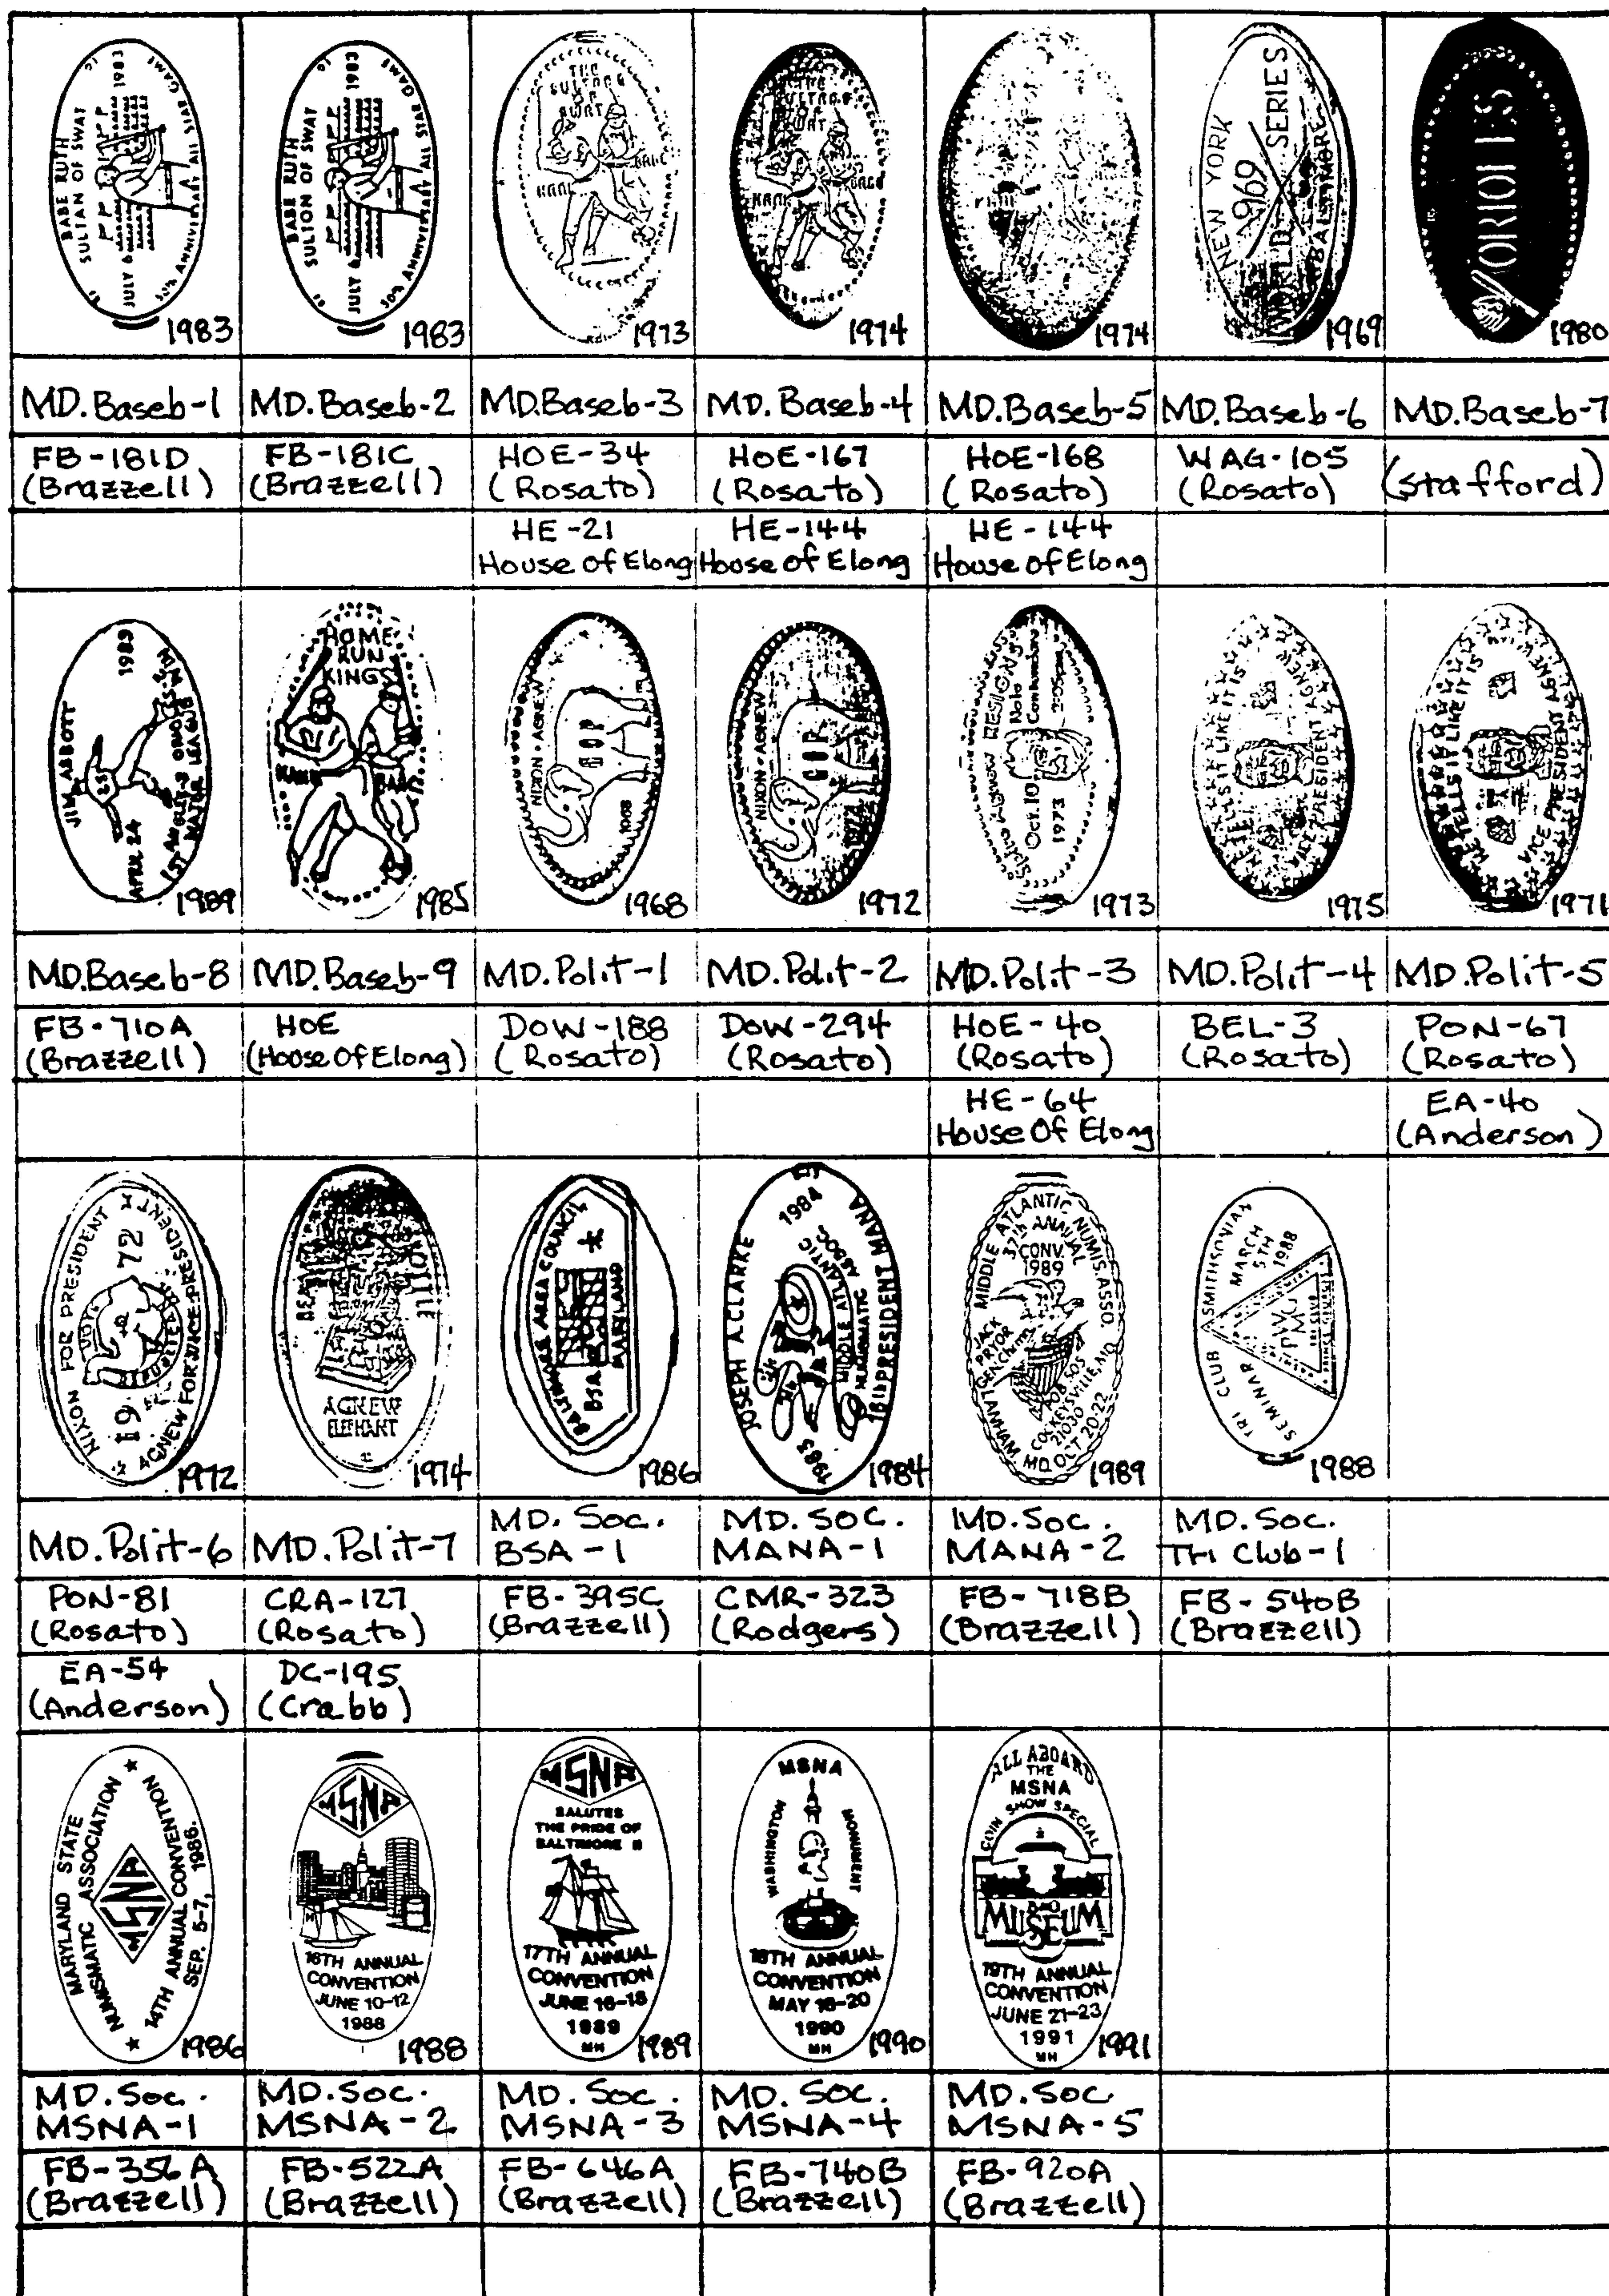 BABE RUTH
SULTAN OF SWAT
JULY 6 1983
50th ANNIVERSARY ALL STAR GAME
1983
BABE RUTH
SULTON OF SWAT
JULY 6 1983
50th ANNIVERSARY ALL STAR GAME
1983
THE
SULTANS
OF
SWAT
HANK
BABE
1973
HANK
1974
1974
NEW YORK
1969
WORLD SERIES
BALTIMORE
1969
ORIOLES
1980
MD. Baseb-1
MD. Baseb-2
MD.Baseb-3
MD. Baseb-4
MD.Baseb-5
MD.Baseb-6
MD.Baseb-7
FB-181D
(Brazzell)
FB-181C
(Brazzell)
HOE-34
(Rosato)
HOE-167
(Rosato)
HOE-168
(Rosato)
WAG-105
(Rosato)
(Stafford)
HE-21
House of Elong
HE-144
House of Elong
HE-144
House of Elong
JIM ABBOTT
APRIL 24 1989
MAJOR LEAGUE
1989
HOME
RUN
KINGS
HANK
1985
NIXON • AGNEW
GOP
1968
1968
NIXON • AGNEW
GOP
1972
1972
Spiro Agnew RESIGNS
Nolo
Contendere
Oct. 10,
1973
1973
HE TELLS IT LIKE IT IS
VICE PRESIDENT AGNEW
1975
HE TELLS IT LIKE IT IS
VICE PRESIDENT AGNEW
1971
MD.Baseb-8
MD.Baseb-9
MD.Polit-1
MD.Polit-2
MD.Polit-3
MD.Polit-4
MD.Polit-5
FB-710A
(Brazzell)
HOE
(House Of Elong)
DOW-188
(Rosato)
DOW-294
(Rosato)
HOE-40
(Rosato)
BEL-3
(Rosato)
PON-67
(Rosato)
HE-64
House Of Elong
EA-40
(Anderson)
NIXON FOR PRESIDENT
19 72
AGNEW FOR VICE-PRESIDENT
1972
BEAM
BOTTLE
AGNEW
ELEPHANT
1974
BALTIMORE AREA COUNCIL
BSA
MARYLAND
1986
JOSEPH A. CLARKE
1984
1983
MIDDLE ATLANTIC
NUMISMATIC ASSOC
18th PRESIDENT MANA
1984
MIDDLE ATLANTIC NUMIS. ASSO.
37th ANNUAL
CONV.
1989
JACK
PRYOR
GEN. CHMN.
POB 505
COCKEYSVILLE, MD
21030
LANHAM MD OCT 20-22
1989
TRI CLUB SMITHSONIAN
SEMINAR MARCH
5TH
1988
1988
MD.Polit-6
MD.Polit-7
MD. Soc.
BSA-1
MD. Soc.
MANA-1
MD. Soc.
MANA-2
MD. Soc.
Tri Club-1
PON-81
(Rosato)
CRA-127
(Rosato)
FB-395C
(Brazzell)
CMR-323
(Rodgers)
FB-718B
(Brazzell)
FB-540B
(Brazzell)
EA-54
(Anderson)
DC-195
(Crabb)
MARYLAND STATE
NUMISMATIC ASSOCIATION
MSNA
14TH ANNUAL CONVENTION
SEP. 5-7, 1986.
1986
MSNA
16TH ANNUAL
CONVENTION
JUNE 10-12
1988
1988
MSNA
SALUTES
THE PRIDE OF
BALTIMORE II
17TH ANNUAL
CONVENTION
JUNE 16-18
1989
MH
1989
MSNA
WASHINGTON MONUMENT
18TH ANNUAL
CONVENTION
MAY 18-20
1990
MH
1990
ALL ABOARD
THE
MSNA
COIN SHOW SPECIAL
B&O
MUSEUM
19TH ANNUAL
CONVENTION
JUNE 21-23
1991
MH
1991
MD. Soc.
MSNA-1
MD. Soc.
MSNA-2
MD. Soc.
MSNA-3
MD. Soc.
MSNA-4
MD. Soc
MSNA-5
FB-356A
(Brazzell)
FB-522A
(Brazzell)
FB-646A
(Brazzell)
FB-740B
(Brazzell)
FB-920A
(Brazzell)